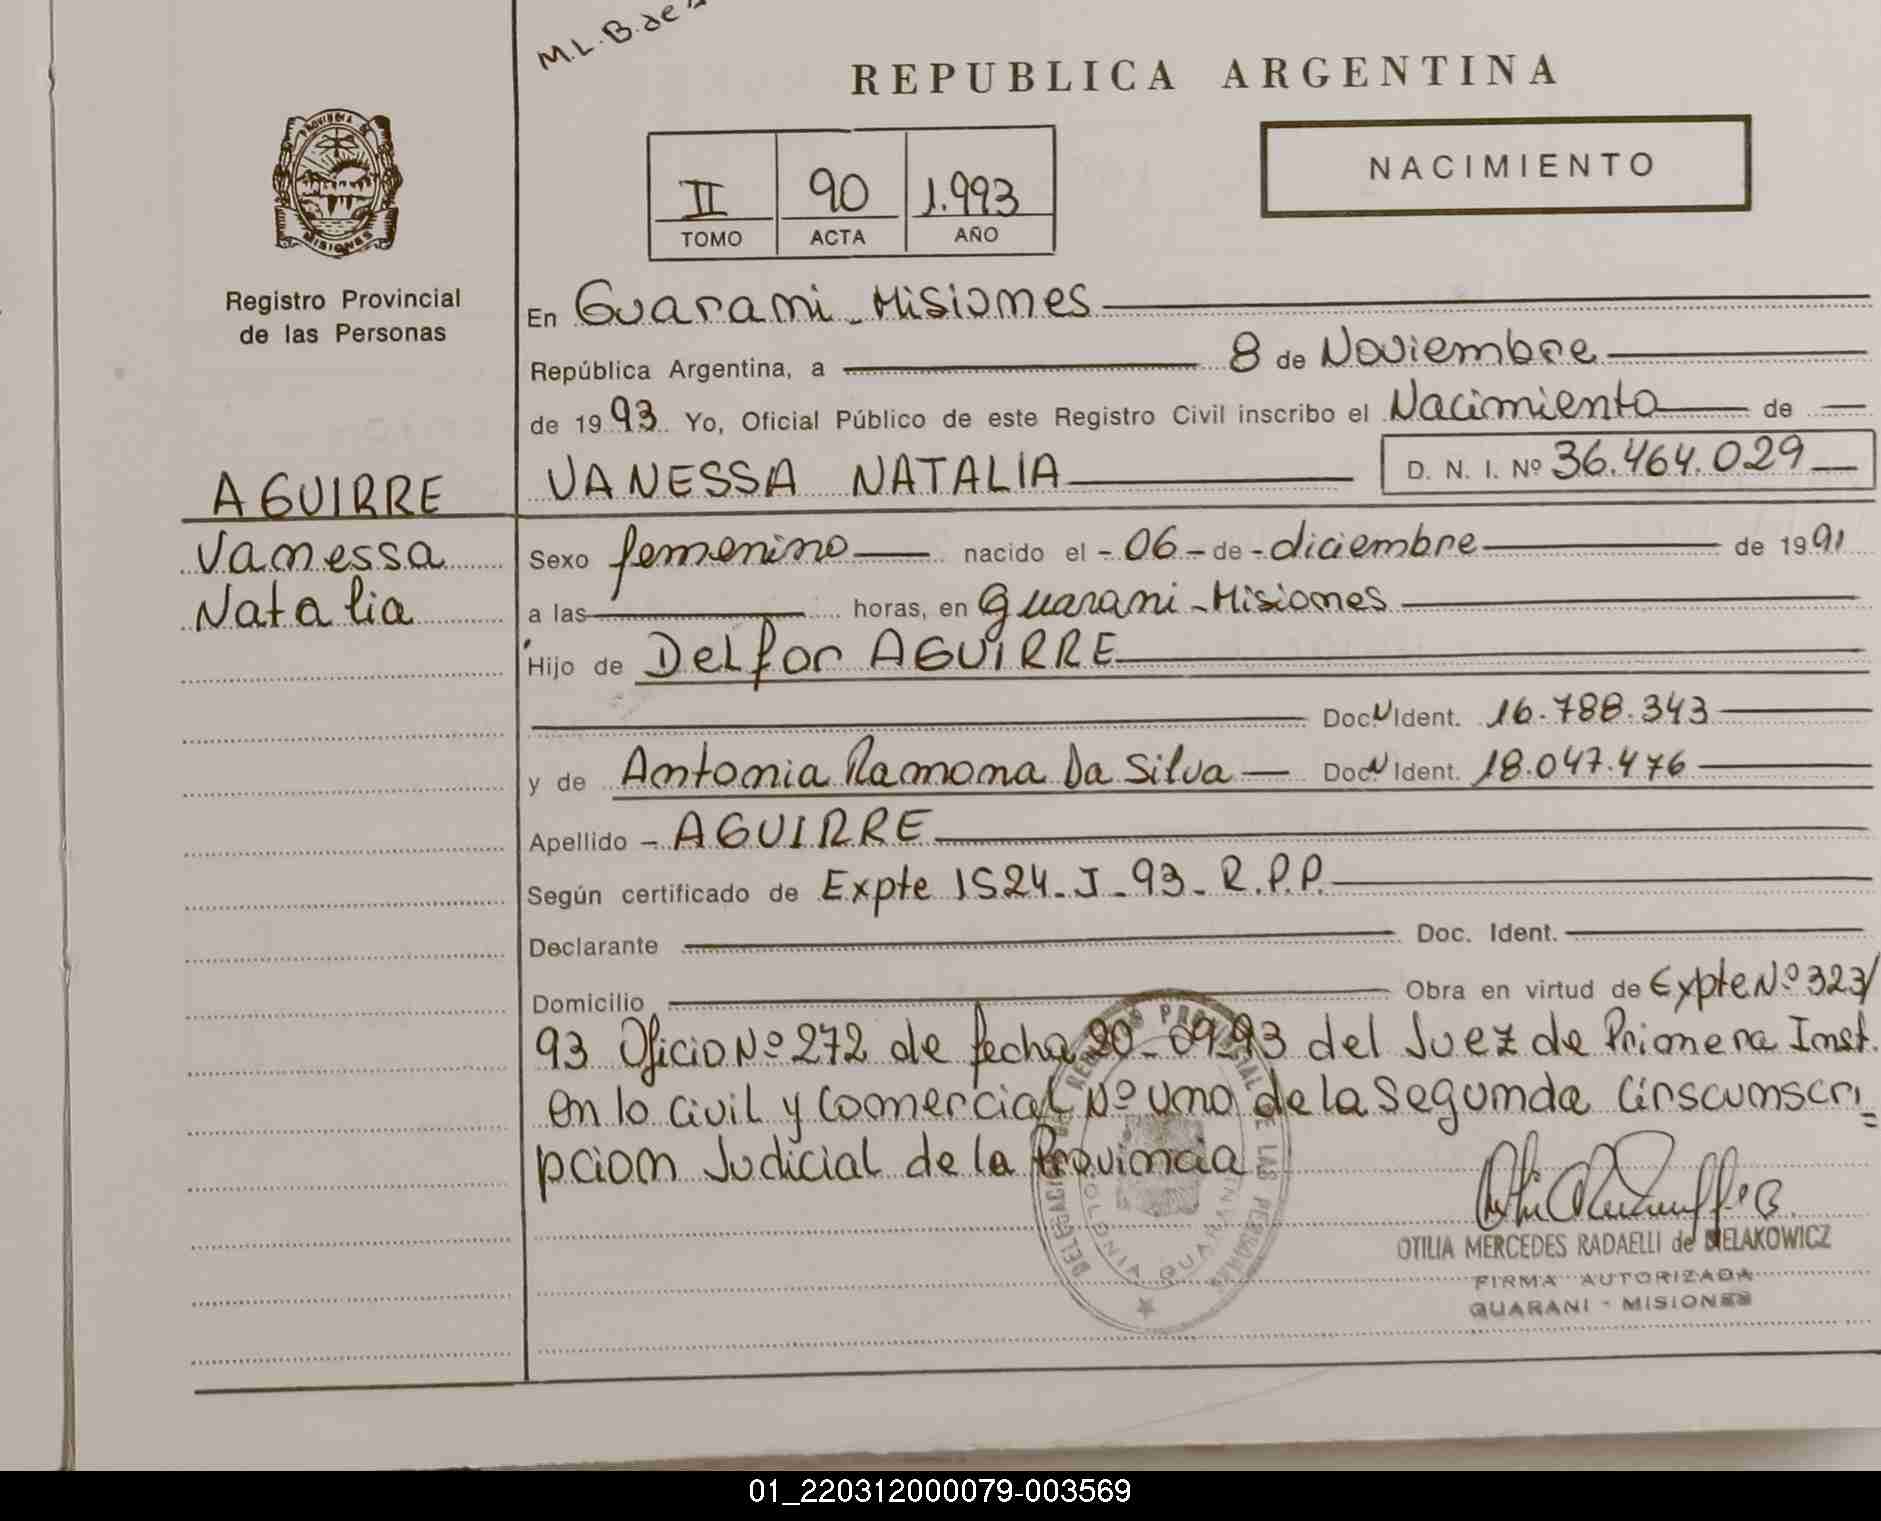 M.L.B. de
REPUBLICA ARGENTINA
PROVINCIA DE
MISIONES
II 90 1.993
TOMO ACTA AÑO
NACIMIENTO
Registro Provincial
de las Personas
En Guarani - Misiones
República Argentina, a 8 de Noviembre
de 1993 Yo, Oficial Público de este Registro Civil inscribo el Nacimiento de
AGUIRRE
Vanessa
Natalia
VANESSA NATALIA D. N. I. Nº 36.464.029
Sexo femenino nacido el - 06 - de - diciembre de 1991
a las horas, en Guarani - Misiones
Hijo de Delfor AGUIRRE
Doc N Ident. 16.788.343
y de Antonia Ramona Da Silva Doc N Ident. 18.047.476
Apellido - AGUIRRE
Según certificado de Expte 1524 - J - 93 - R.P.P.
Declarante Doc. Ident.
Domicilio Obra en virtud de Expte Nº 323/
93 Oficio Nº 272 de fecha 20-09-93 del Juez de Primera Inst.
en lo Civil y Comercial Nº uno de la Segunda Cirscunscri=
pcion Judicial de la Provincia
PROVINCIAL DE LAS PERSONAS
GUARANI
OTILIA MERCEDES RADAELLI de BIELAKOWICZ
FIRMA AUTORIZADA
GUARANI - MISIONES
01_220312000079-003569